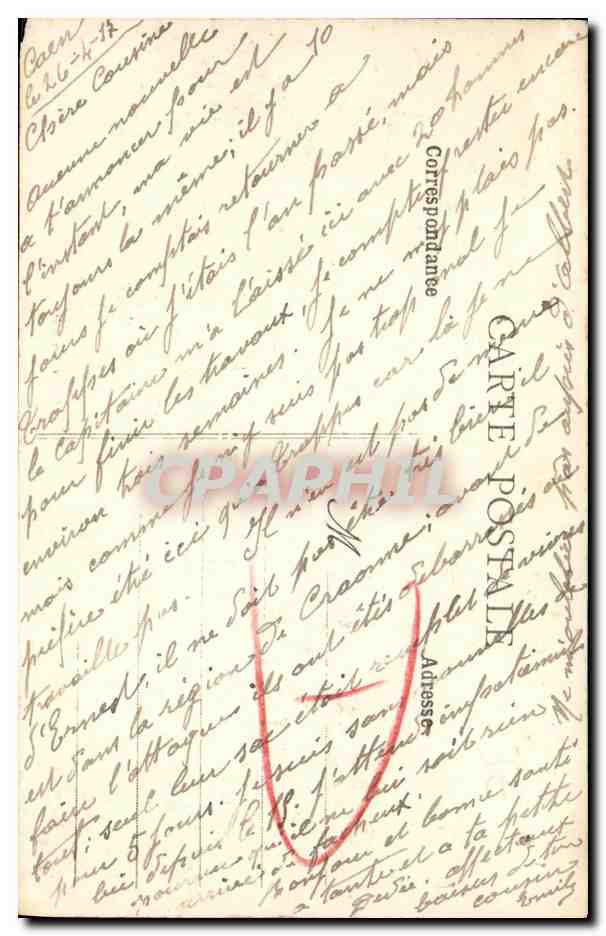 Caen
le 26-4-17
Chère Cousine
Aucune nouvelle
a t'annoncer pour
l'instant, ma vie est
toujours la même, il y a 10
jours je comptais retourner a
Trappes où j'étais l'an passé, mais
le capitaine m'a laissé ici avec 20 hommes
pour finir les travaux, je compte rester encore
environ trois semaines. Je ne m'y plais pas.
mais comme j'y suis pas trop mal je
préfère été ici qu'a Trappes car là je ne
travaille pas. Il n'en est pas de même
d'Ernest, il ne doit pas être très bien, il
est dans la région de Craonne, avant de
faire l'attaque ils ont étés débarrassés de
tout, seul leur sac était remplit de vivres
pour 5 jours. Je suis sans nouvelles de
lui depuis le 15. J'attend impatiemment
pourvu qu'il ne lui soit rien
arrivé de fâcheux.
Bonjour et bonne santé
a tante et a ta petite
Dédée. affectueux
baisers de ton
cousin
Emile
CARTE POSTALE
Correspondance
Adresse
M
CPAPHIL